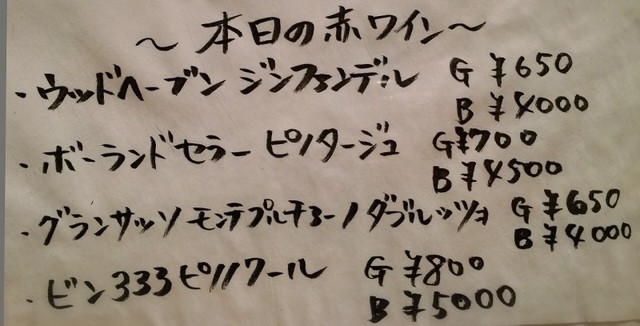 ～本日の赤ワイン～
・ウッドヘーブン ジンファンデル G ¥650
B ¥4000
・ボーランドセラー ピノタージュ G ¥700
B ¥4500
・グランサッソ モンテプルチャーノ ダブルッツォ G ¥650
B ¥4000
・ビン333ピノノワール G ¥800
B ¥5000